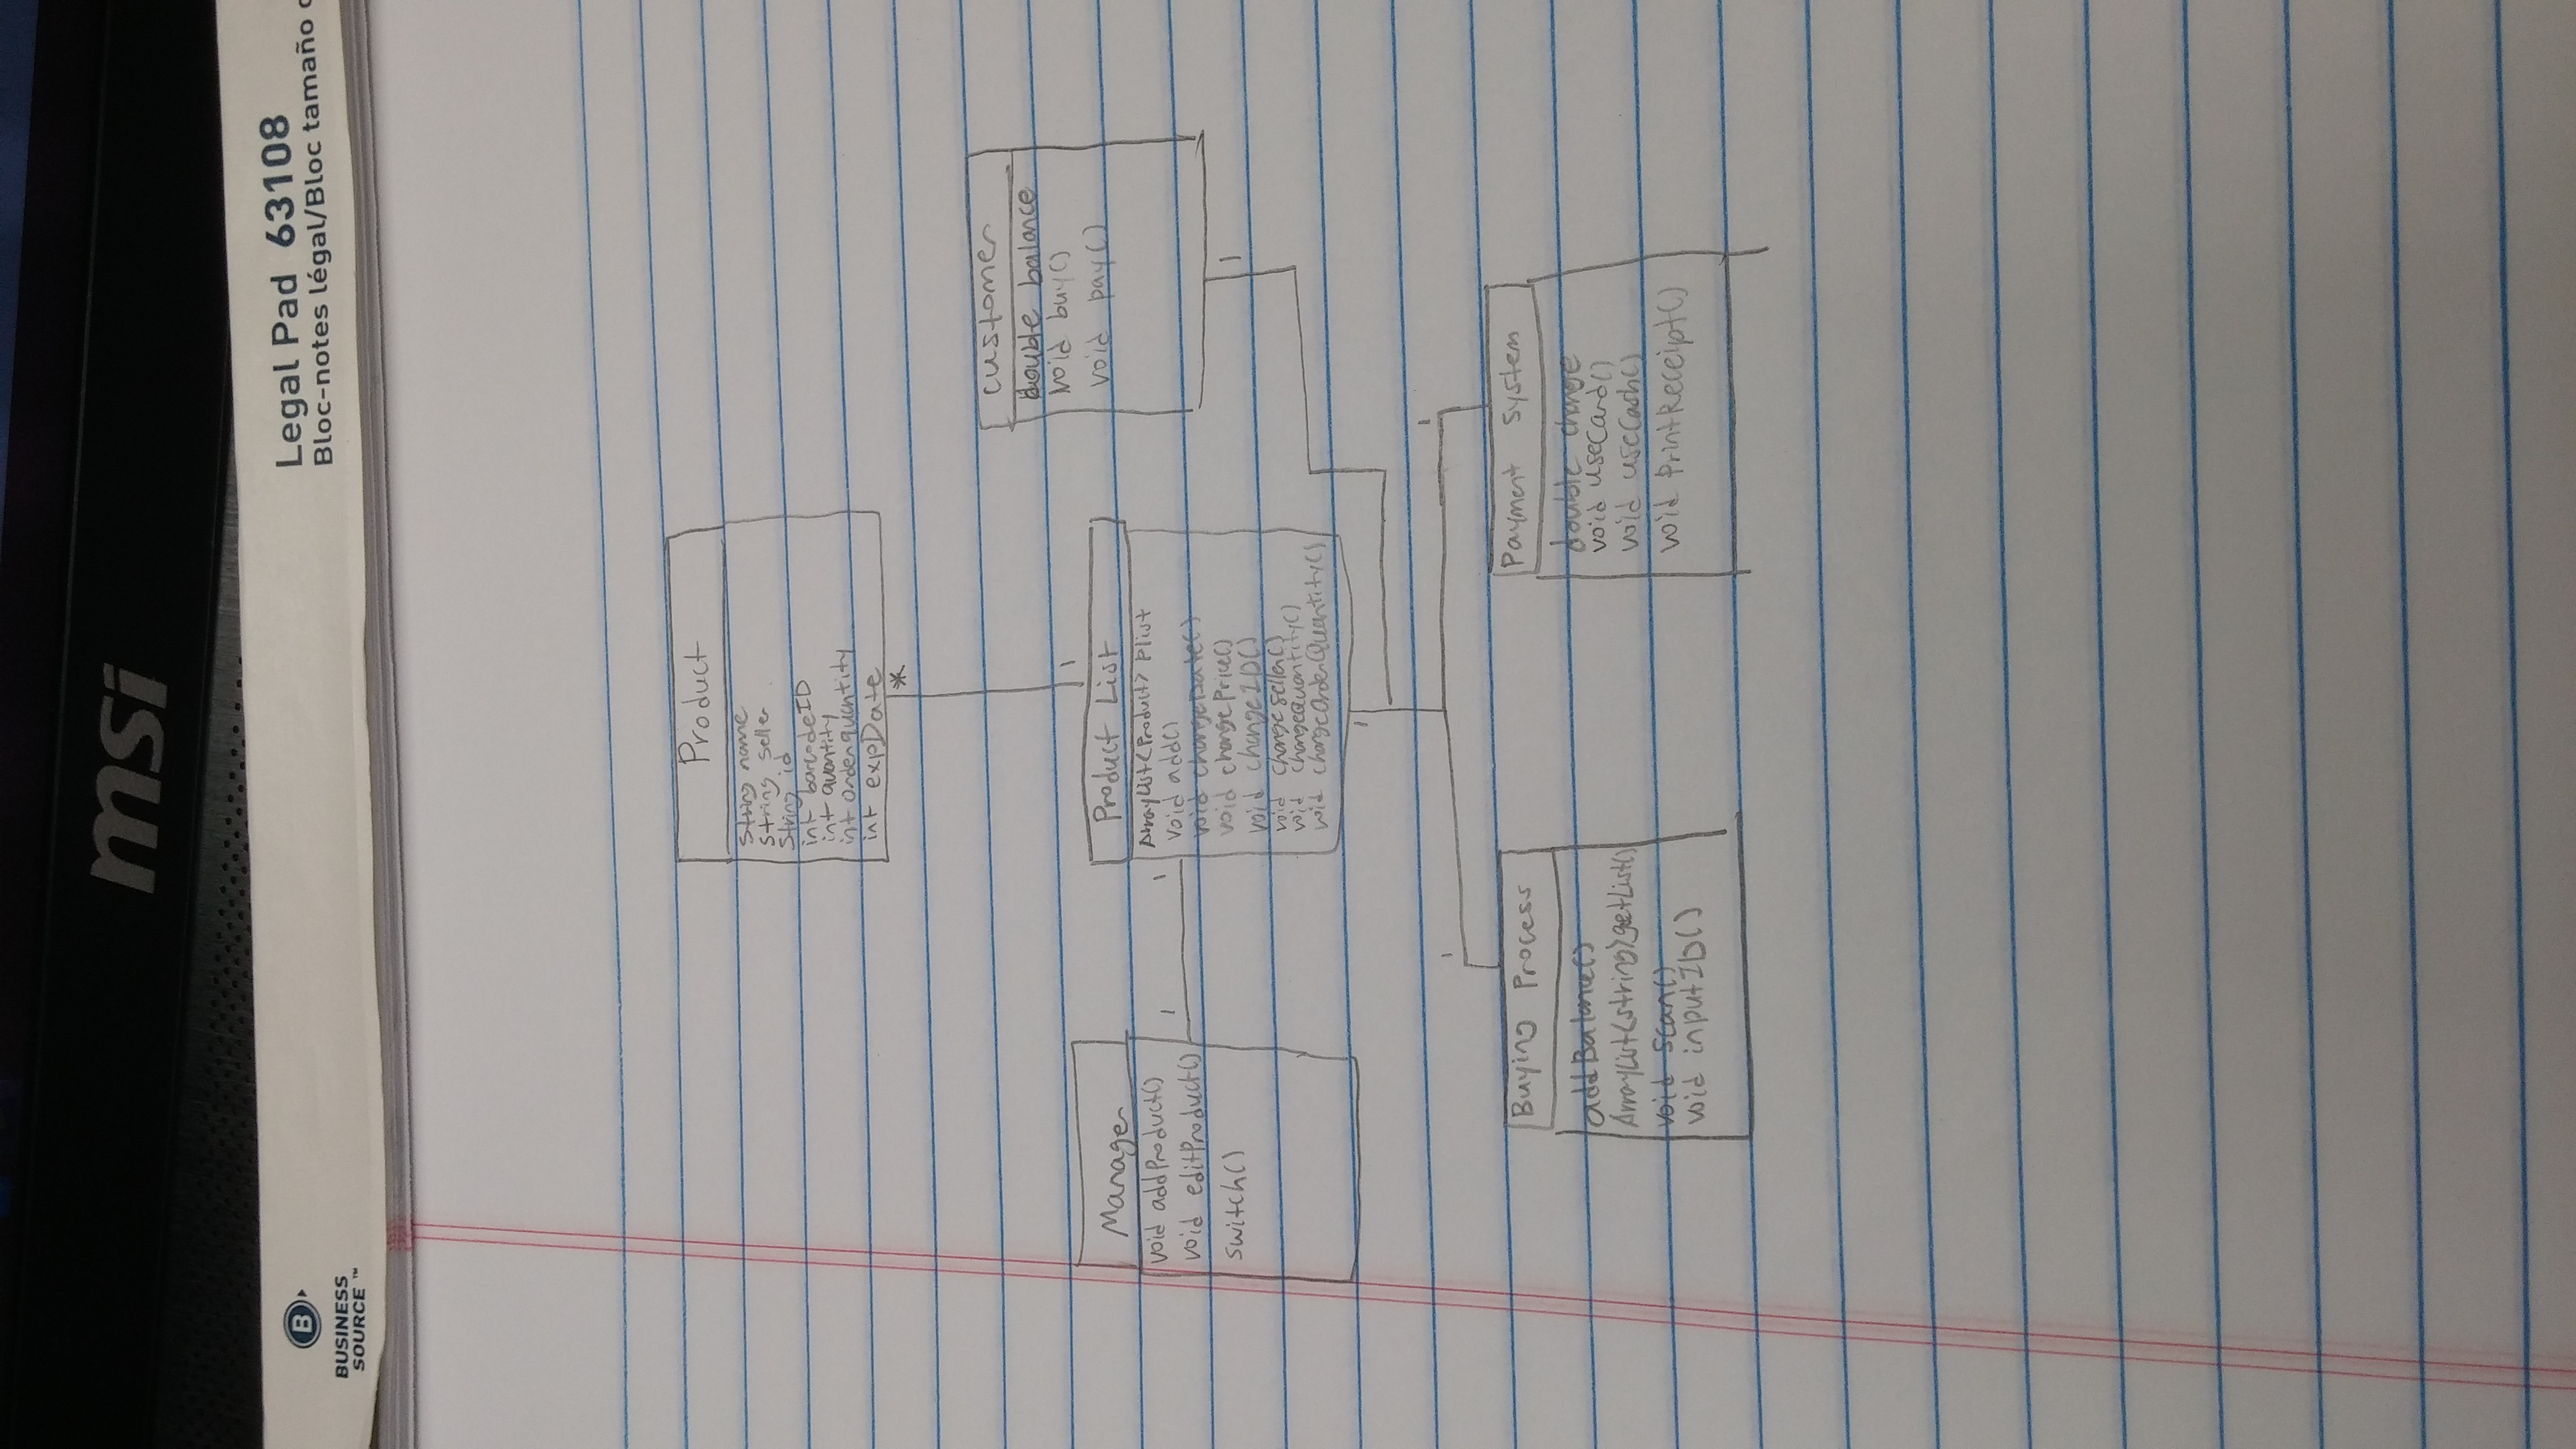 msi
B
BUSINESS
SOURCE ™
Legal Pad 63108
Bloc-notes légal/Bloc tamaño
Product
String name
String seller
String id
int barcodeID
int quantity
int orderquantity
int expDate
*
1
customer
double balance
void buy()
void pay()
1
Manager
void addProduct()
void editProduct()
switch()
1
1
Product List
ArrayList<Product> plist
void add()
void changeDate()
void changePrice()
void changeID()
void changeSeller()
void changeQuantity()
void changeOrderQuantity()
1
1
1
Buying Process
addBalance()
ArrayList<string>getList()
void scan()
void inputID()
Payment System
double change
void useCard()
void useCash()
void PrintReceipt()